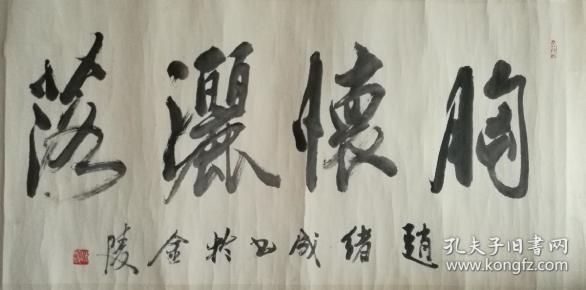 胸懷灑落
趙緒成書於金陵
孔夫子旧书网
www.kongfz.com